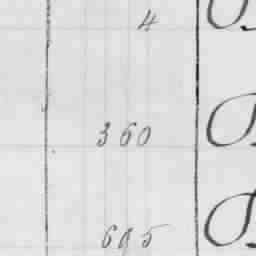 4
360
695